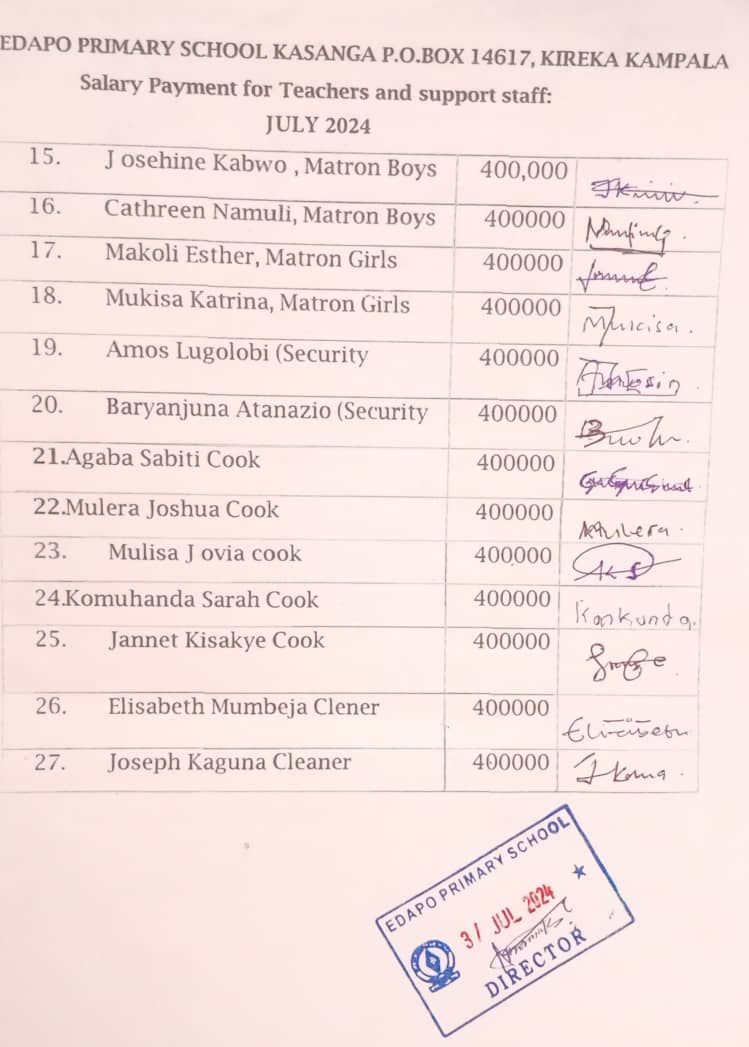 EDAPO PRIMARY SCHOOL KASANGA P.O.BOX 14617, KIREKA KAMPALA
Salary Payment for Teachers and support staff:
JULY 2024
15. J osehine Kabwo , Matron Boys 400,000
16. Cathreen Namuli, Matron Boys 400000
17. Makoli Esther, Matron Girls 400000
18. Mukisa Katrina, Matron Girls 400000 Mukisa.
19. Amos Lugolobi (Security 400000
20. Baryanjuna Atanazio (Security 400000
21.Agaba Sabiti Cook 400000
22.Mulera Joshua Cook 400000
23. Mulisa J ovia cook 400000
24.Komuhanda Sarah Cook 400000
25. Jannet Kisakye Cook 400000
26. Elisabeth Mumbeja Clener 400000
27. Joseph Kaguna Cleaner 400000
EDAPO PRIMARY SCHOOL
31 JUL 2024
DIRECTOR